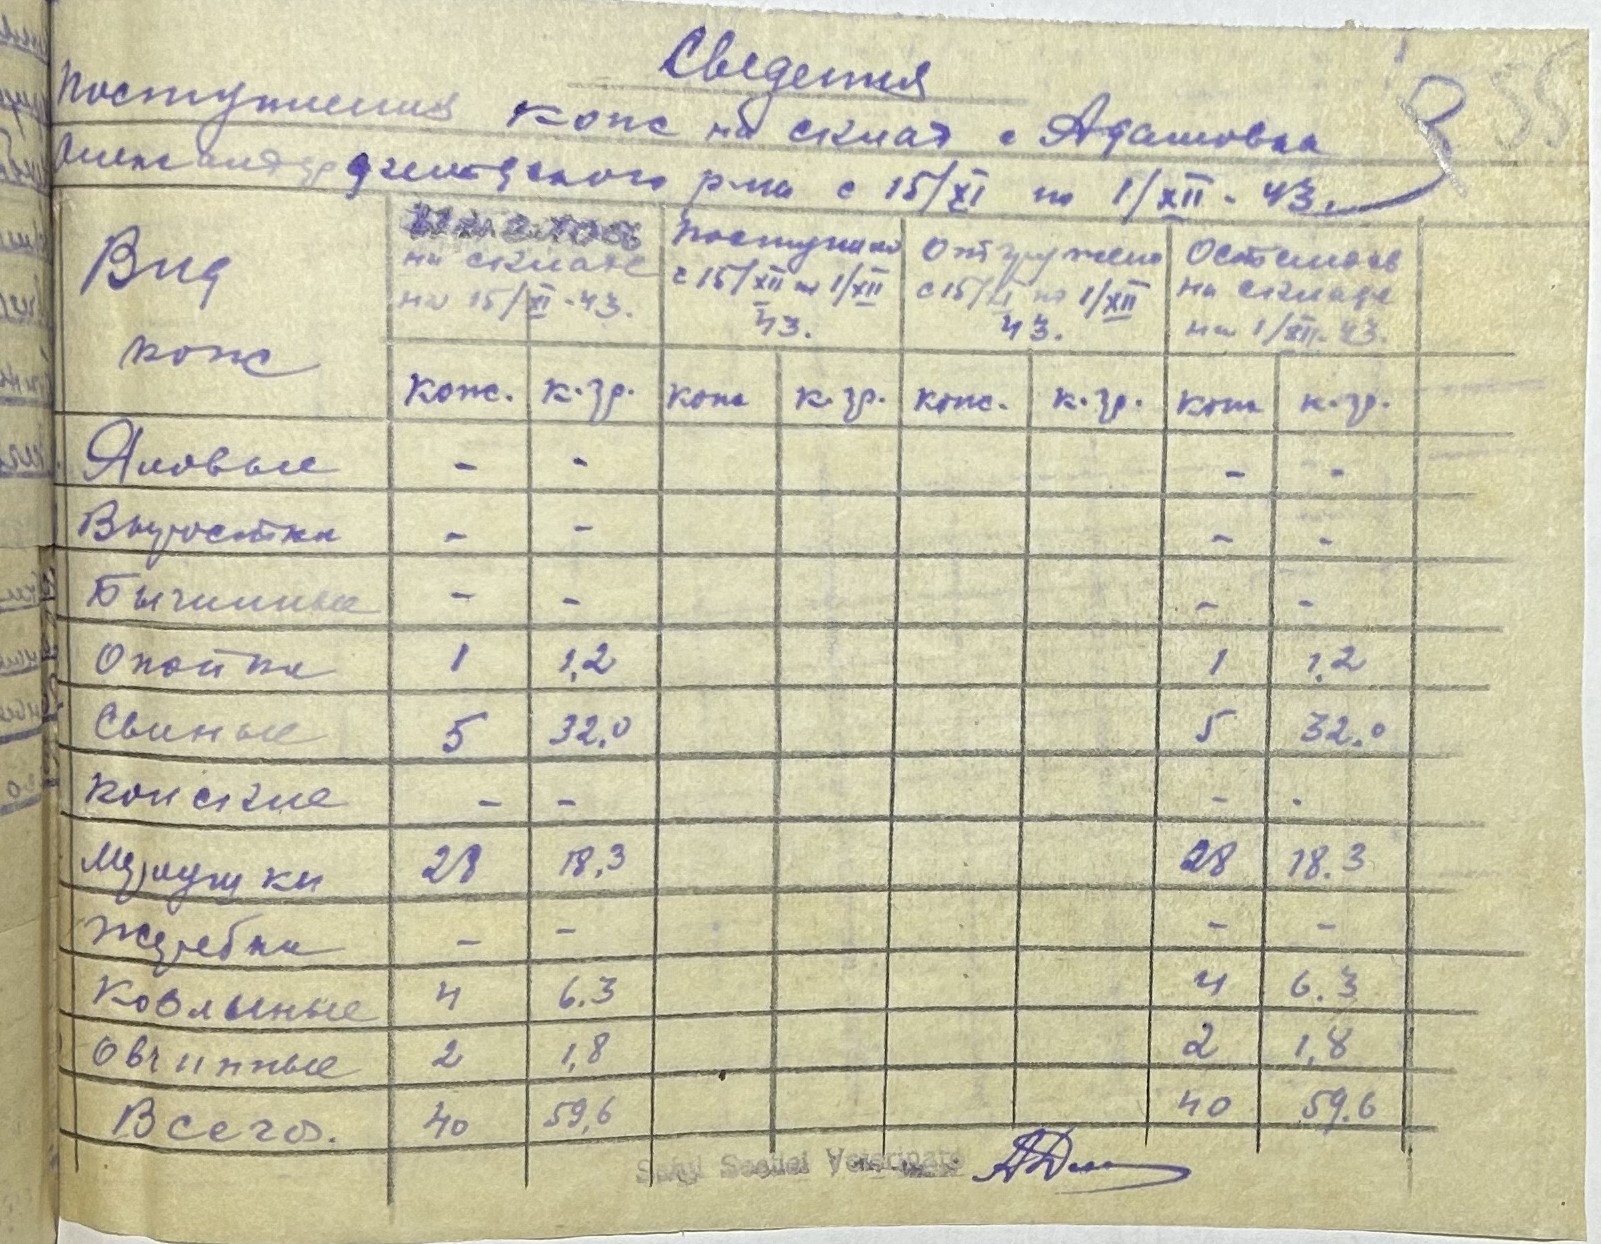 Сведения
Поступления кож на склад с Адамовка
р-на с 15/XI по 1/XII - 43.
55
Вид кож
на складе на 15/XI-43.
Поступило с 15/XII по 1/XII 43.
Отгружено с 15/XI по 1/XII 43.
Осталось на складе на 1/XII-43.
кож. к.гр. кож к.гр. кож. к.гр. кож к.гр.
Яловые - - - -
Выростки - - - -
Бычинные - - - -
Опойки 1 1,2 1 1,2
Свиные 5 32.0 5 32.0
Конские - - - -
Мерлушки 28 18,3 28 18.3
Жеребки - - - -
Козлиные 4 6.3 4 6.3
Овчинные 2 1,8 2 1,8
Всего. 40 59,6 40 59.6
Veterinare